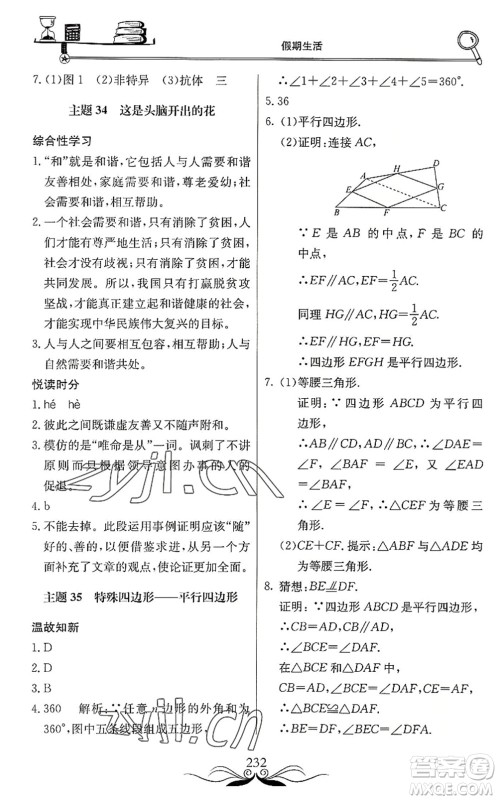 假期生活
7. (1)图 1　(2)非特异　(3)抗体　三
主题 34　这是头脑开出的花
综合性学习
1. “和”就是和谐，它包括人与人需要和谐
友善相处，家庭需要和谐，尊老爱幼；社会
需要和谐，相互帮助.
2. 一个社会需要和谐，只有消除了贫困，人
们才能有尊严地生活；只有消除了贫困，
社会才没有歧视；只有消除了贫困，才能
共同发展。我国实施的扶贫开发脱贫攻
坚战，才能构建和谐健康的社会，才能真
正实现中华民族伟大复兴的中国梦.
3. 人与人之间需要和谐，相互帮助；人与
自然需要和谐共处.
悦读时分
1. hé　hè
2. 彼此之间既谦虚友善又不随声附和.
3. 模仿的是“唯命是从”一词。讽刺了不讲
原则而只根据领导意图办事的人的
促狭.
4. b
5. 不能去掉。此段运用事例证明应该“随”
好的、善的，并不是说什么都“随”，有力地
补充了文章的观点，使论证更加严密.
主题 35　特殊四边形——平行四边形
温故知新
1. D
2. D
3. B
4. 360°　解析：∵任意 n 边形的外角和为
360°，图中五条线段组成五边形，
∴∠1+∠2+∠3+∠4+∠5=360°.
5. 36
6. (1)平行四边形.
(2)证明：连接 AC，
D
H
A
E
G
B
F
C
∵E 是 AB 的中点，F 是 BC 的
中点，
∴EF∥AC，EF=1/2 AC.
同理 HG∥AC，HG=1/2 AC.
∴EF∥HG，EF=HG.
∴四边形 EFGH 是平行四边形.
7. (1)等腰三角形.
证明：∵四边形 ABCD 为平行四
边形，
∴AB∥CD，AD∥BC，∠DAE=
∠F，∠BAE=∠E.
∵∠E=∠F，∴△CEF 为等腰三
角形.
(2)CE+CF. 提示：△ABF、△ADE
为等腰三角形.
8. 猜想：BE⫽DF.
证明：∵四边形 ABCD 是平行四边形，
∴CB=AD，CB∥AD.
∴∠BCE=∠DAF.
在△BCE 和△DAF 中，
CB=AD，∠BCE=∠DAF，CE=AF，
∴△BCE≌△DAF.
∴BE=DF，∠BEC=∠DFA.
232
zyjl.cn
zyjl.cn
答案圈
MXQE.COM